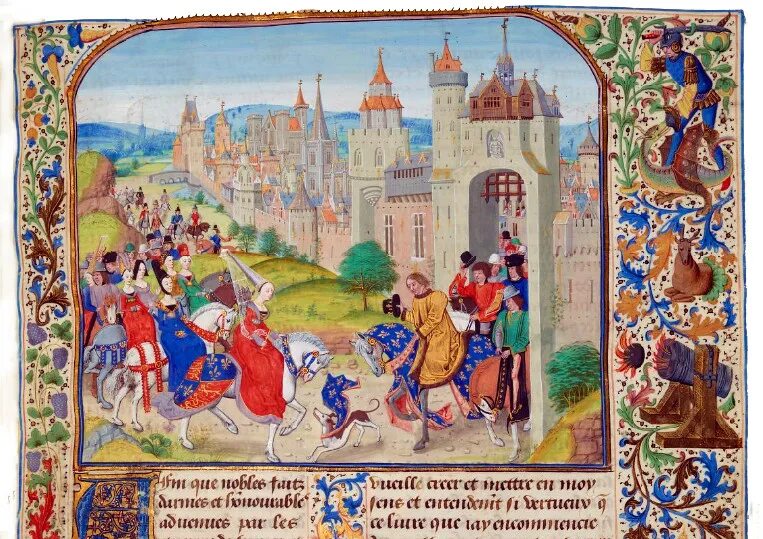 Affin que nobles faitz
darmes et hōnourable
aduenues par les
vueille creer et mettre en moy
sens et entendent si vertueux q̄
ce liure que iay encommencie